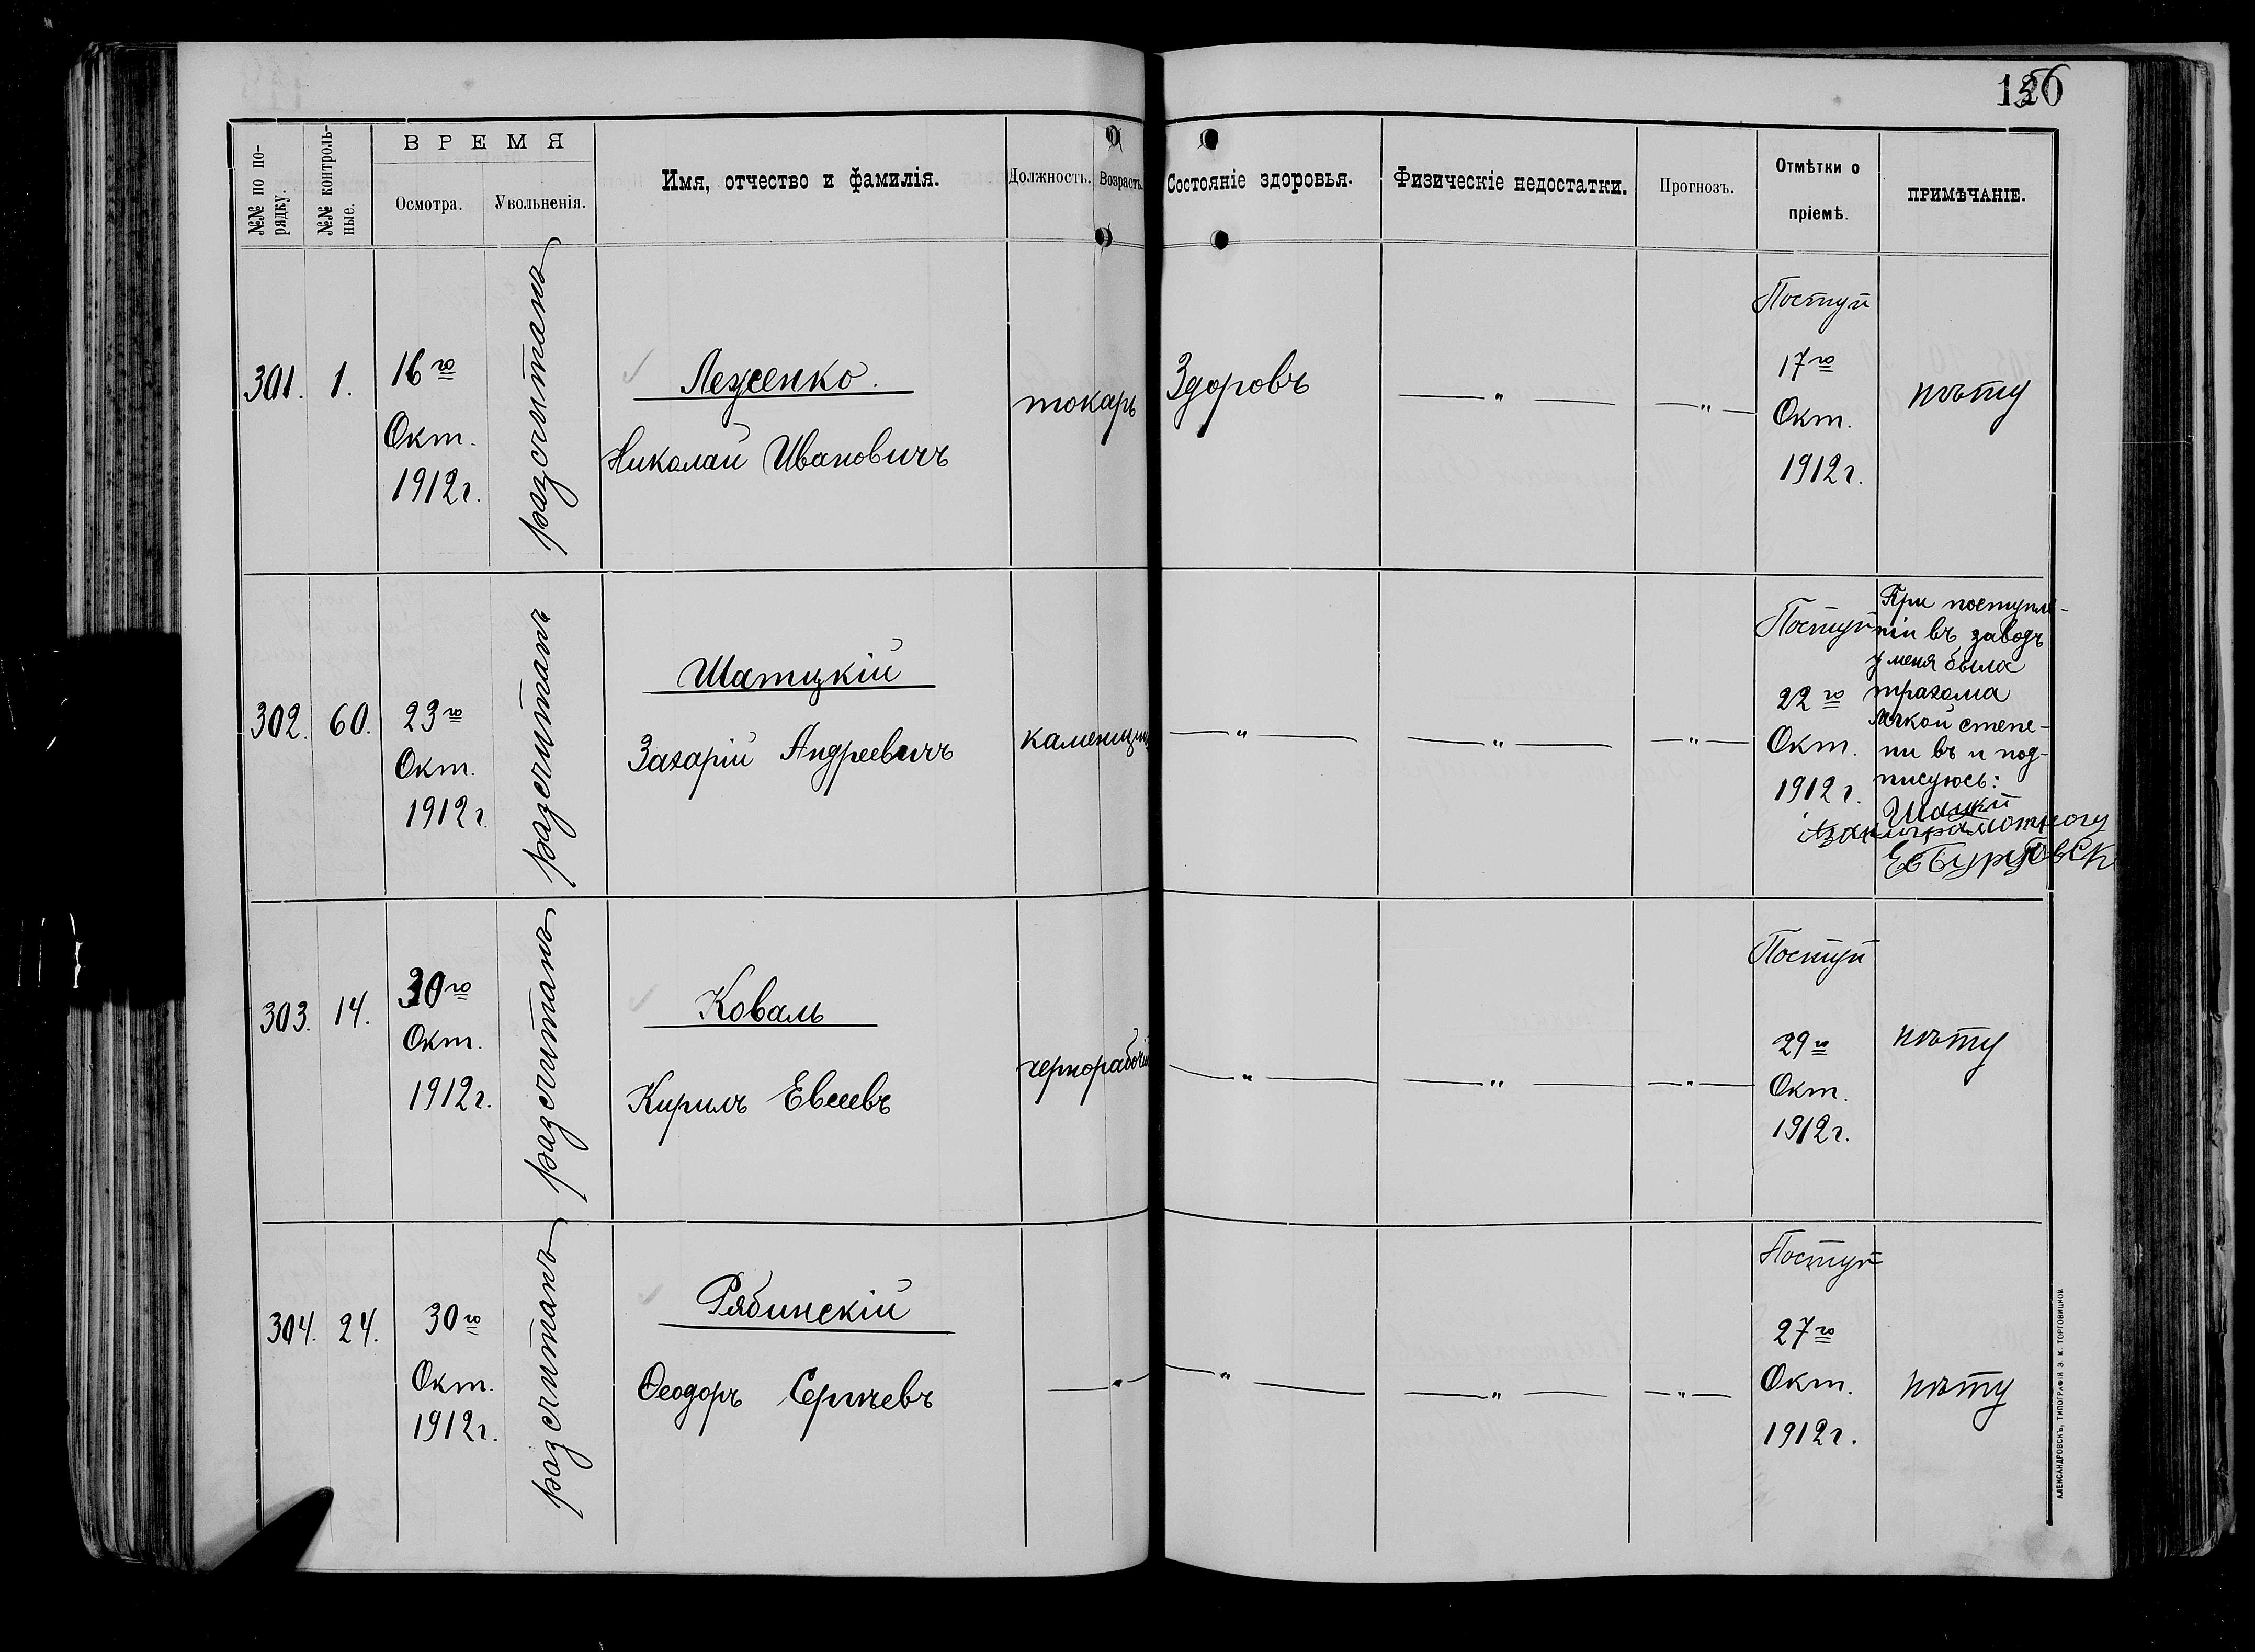 ВРЕМЯ
№№ по по-
рядку.
№№ контроль-
ные.
Осмотра.
Увольненія.
Имя, отчество и фамилія.
Должность.
Возрастъ.
Состояніе здоровья.
Физическіе недостатки.
Прогнозъ.
Отмѣтки о
пріемѣ.
ПРИМѢЧАНІЕ.
301.
1.
16го
Окт.
1912г.
разсчитанъ
Леженко.
Николай Ивановичъ
токарь
Здоровъ
— " —
— " —
Поступ
17го
Окт.
1912г.
302.
60.
23го
Окт.
1912г.
разсчитанъ
Шатцкій
Захарій Андреевичъ
каменщик
— " —
— " —
— " —
Поступ
22го
Окт.
1912г.
При поступле-
ніи въ заводъ
у меня была
трахома
легкой степе-
ни въ и под-
писуюсь:
303.
14.
30го
Окт.
1912г.
разсчитанъ
Коваль
Кирилъ Евсеевъ
чернорабочій
— " —
— " —
— " —
Поступ
29го
Окт.
1912г.
304.
24.
30го
Окт.
1912г.
разсчитанъ
Рябинскій
Ѳеодоръ Сергѣевъ
— " —
— " —
— " —
— " —
Поступ
27го
Окт.
1912г.
АЛЕКСАНДРОВСКЪ, ТИПОГРАФІЯ Э. М. ТОРГОВИЦКОЙ